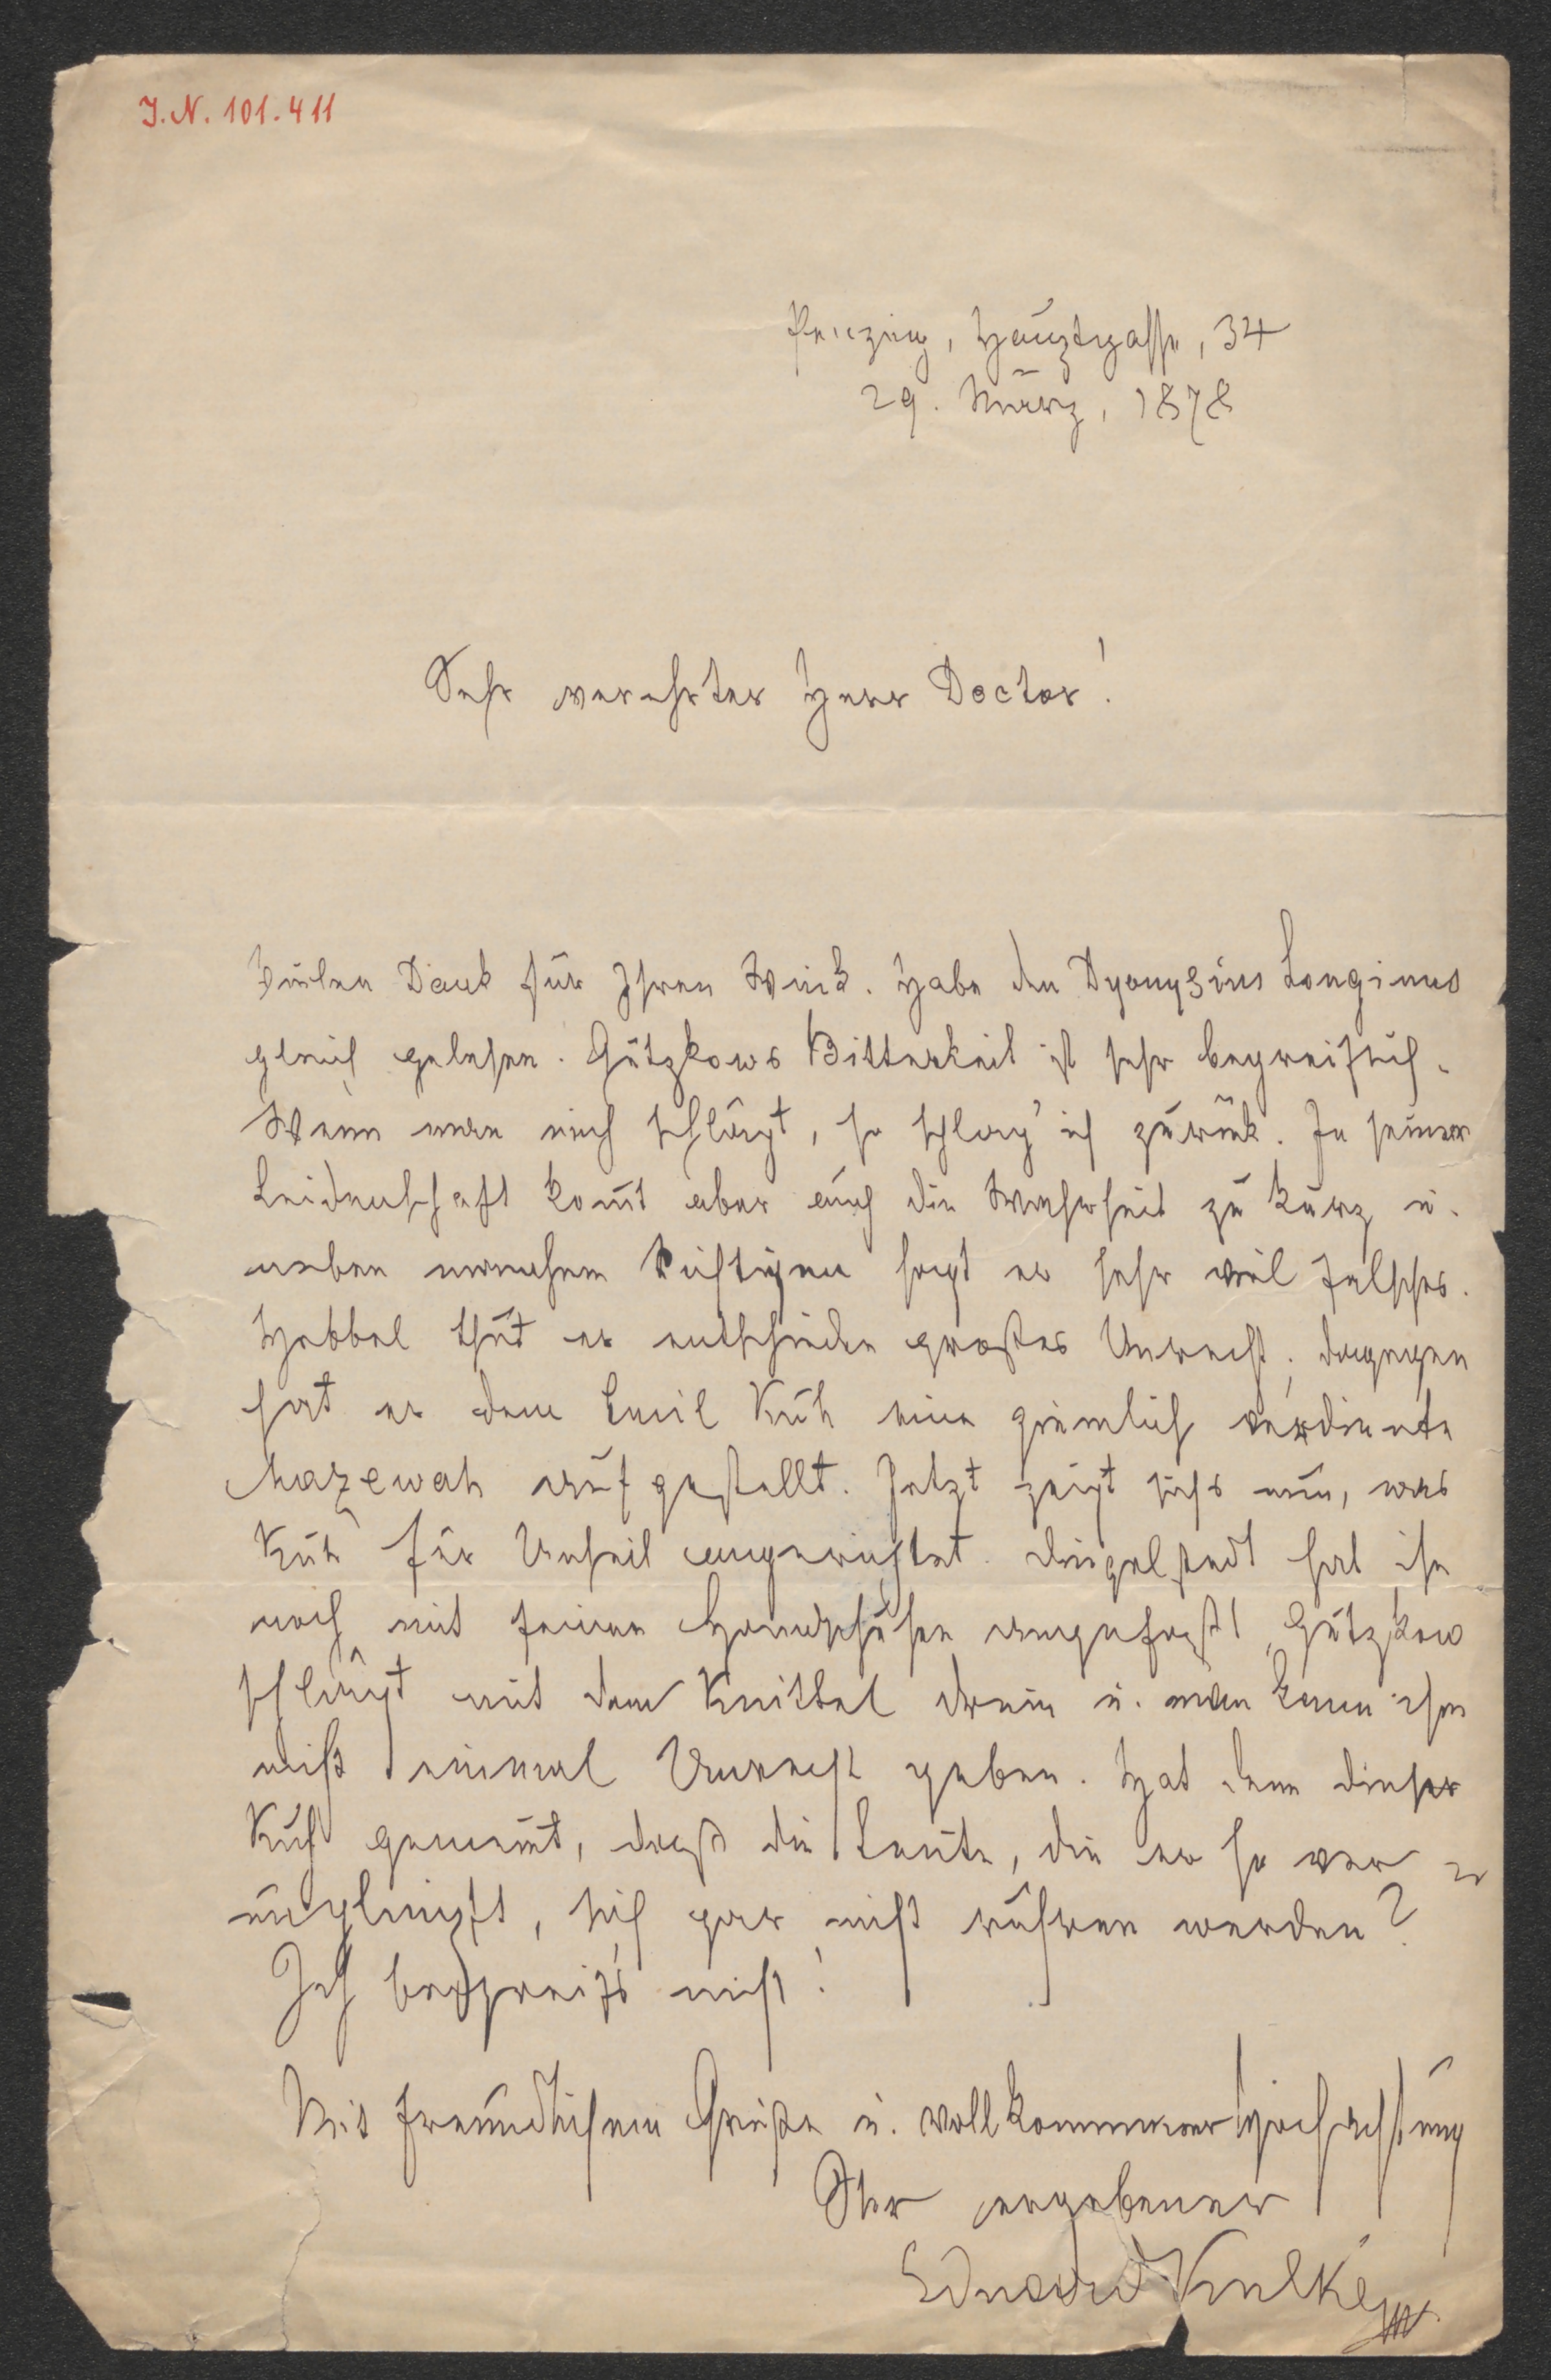 J.N. 101.411
Penzing, Hauptgasse, 34
29. März, 1878
Sehr verehrter Herr Doctor!
Vielen Dank für Ihren Wink. Habe den Dyonysius Longinus
gleich gelesen. Gutzkows Bitterkeit ist sehr begreiflich.
Wenn man mich schlägt, so schlag' ich zurück. In seiner
Leidenschaft kom̄t aber auch die Wahrheit zu kurz u.
neben manchem Richtigen sagt er sehr viel Falsches.
Hebbel thut er entschieden großes Unrecht; dagegen
hat er dem Emil Kuh eine ziemlich verdiente
Mazewah aufgestellt. Jetzt zeigt sichs nun, was
Kuh für Unheil angerichtet. Dingelstedt hat ihn
noch mit feinen Handschuhen angefaßt, Gutzkow
schlägt mit dem Knittel drein u. man kann ihm
nicht einmal Unrecht geben. Hat denn dieser
Kuh gemeint, daß die Leute, die er so ver=
unglimpft, sich gar nicht rühren werden?
Ich begreif's nicht!
Mit freundlichem Gruße u. vollkommener Hochachtung
Ihr ergebener
Eduard Kulke